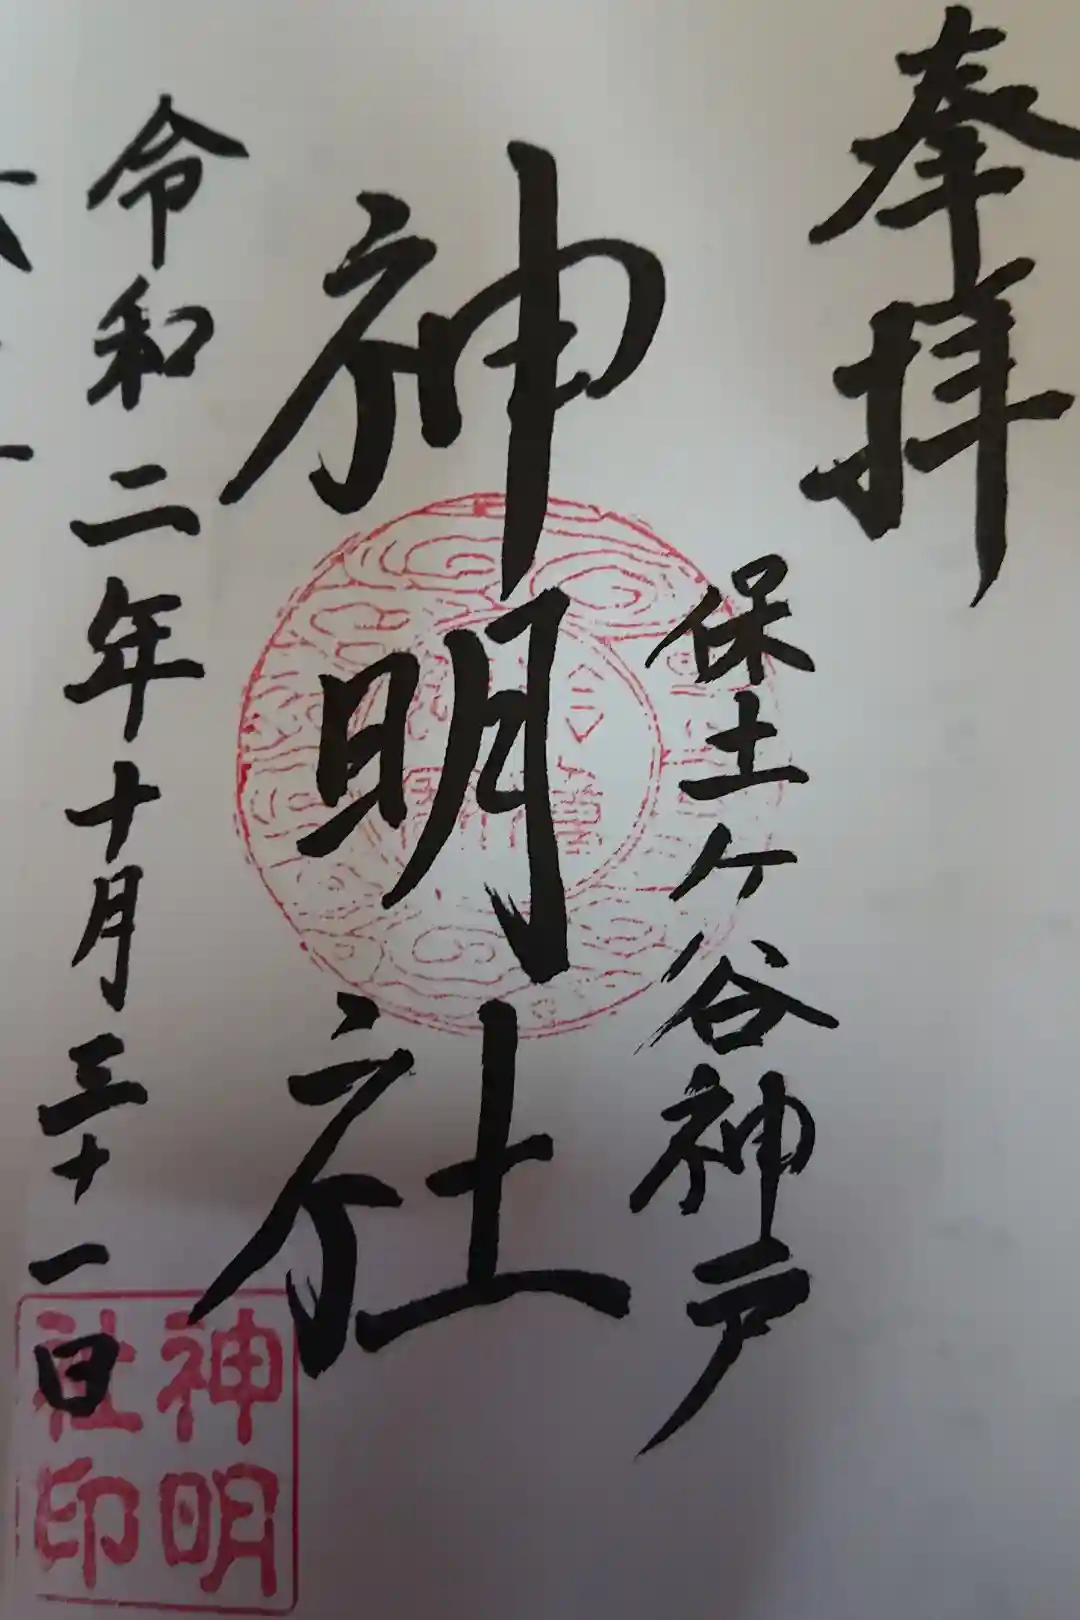 奉拝
保土ヶ谷神戸
神明社
令和二年十月三十一日
神明
社印